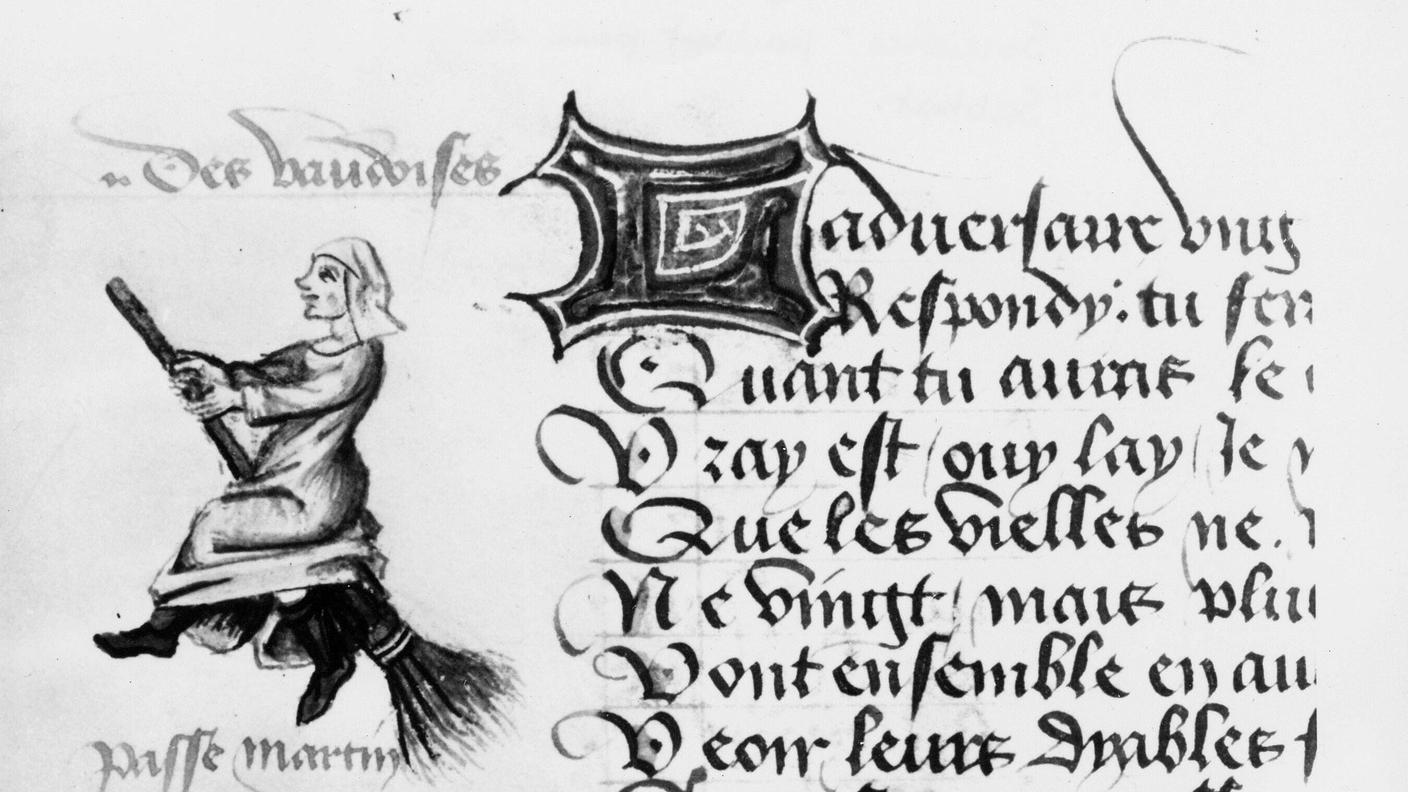 Des vaudoises
adversaire vint
Respondy. tu
Quant tu auras le
Vray est ouy lay Je
Que les vielles ne.
Ne vingt mais plus
Vont ensemble en
Veoir leurs dyables
passe martin